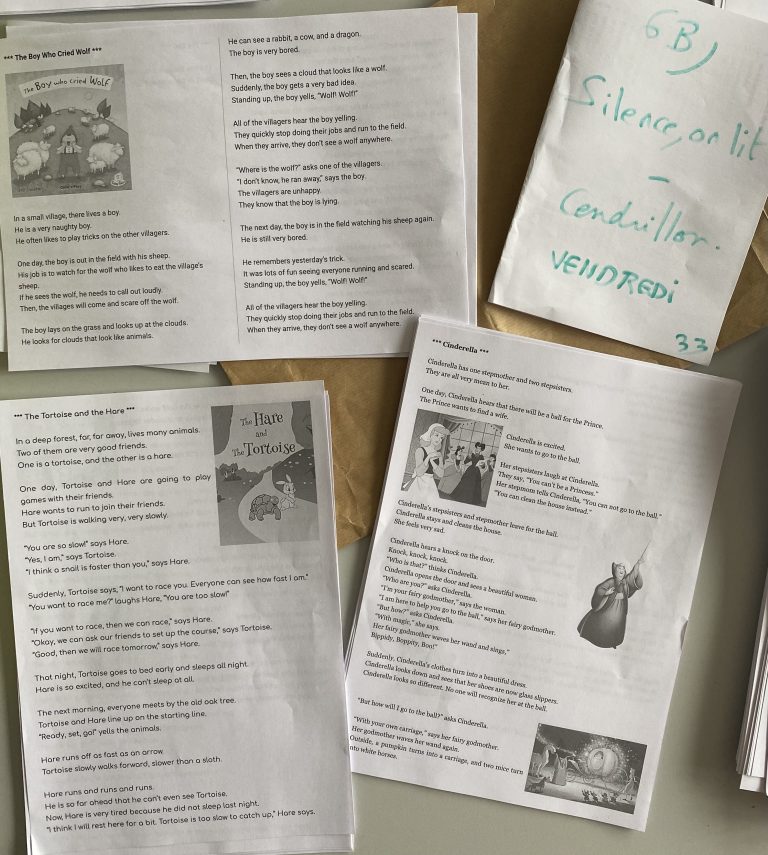 *** The Boy Who Cried Wolf ***
The Boy Who Cried Wolf
In a small village, there lives a boy.
He is a very naughty boy.
He often likes to play tricks on the other villagers.
One day, the boy is out in the field with his sheep.
His job is to watch for the wolf who likes to eat the village's
sheep.
If he sees the wolf, he needs to call out loudly.
Then, the villages will come and scare off the wolf.
The boy lays on the grass and looks up at the clouds.
He looks for clouds that look like animals.
He can see a rabbit, a cow, and a dragon.
The boy is very bored.
Then, the boy sees a cloud that looks like a wolf.
Suddenly, the boy gets a very bad idea.
Standing up, the boy yells, "Wolf! Wolf!"
All of the villagers hear the boy yelling.
They quickly stop doing their jobs and run to the field.
When they arrive, they don't see a wolf anywhere.
"Where is the wolf?" asks one of the villagers.
"I don't know, he ran away," says the boy.
The villagers are unhappy.
They know that the boy is lying.
The next day, the boy is in the field watching his sheep again.
He is still very bored.
He remembers yesterday's trick.
It was lots of fun seeing everyone running and scared.
Standing up, the boy yells, "Wolf! Wolf!"
All of the villagers hear the boy yelling.
They quickly stop doing their jobs and run to the field.
When they arrive, they don't see a wolf anywhere.
6B)
Silence, on lit
-
Cendrillon.
VENDREDi
33
*** The Tortoise and the Hare ***
The Hare
and
The Tortoise
In a deep forest, far, far away, lives many animals.
Two of them are very good friends.
One is a tortoise, and the other is a hare.
One day, Tortoise and Hare are going to play
games with their friends.
Hare wants to run to join their friends.
But Tortoise is walking very, very slowly.
"You are so slow!" says Hare.
"Yes, I am," says Tortoise.
"I think a snail is faster than you," says Hare.
Suddenly, Tortoise says, "I want to race you. Everyone can see how fast I am."
"You want to race me?" laughs Hare, "You are too slow!"
"If you want to race, then we can race," says Hare.
"Okay, we can ask our friends to set up the course," says Tortoise.
"Good, then we will race tomorrow," says Hare.
That night, Tortoise goes to bed early and sleeps all night.
Hare is so excited, and he can't sleep at all.
The next morning, everyone meets by the old oak tree.
Tortoise and Hare line up on the starting line.
"Ready, set, go!" yells the animals.
Hare runs off as fast as an arrow.
Tortoise slowly walks forward, slower than a sloth.
Hare runs and runs and runs.
He is so far ahead that he can't even see Tortoise.
Now, Hare is very tired because he did not sleep last night.
"I think I will rest here for a bit. Tortoise is too slow to catch up," Hare says.
*** Cinderella ***
Cinderella has one stepmother and two stepsisters.
They are all very mean to her.
One day, Cinderella hears that there will be a ball for the Prince.
The Prince wants to find a wife.
Cinderella is excited.
She wants to go to the ball.
Her stepsisters laugh at Cinderella.
They say, "You can't be a Princess."
Her stepmom tells Cinderella, "You can not go to the ball."
"You can clean the house instead."
Cinderella's stepsisters and stepmother leave for the ball.
Cinderella stays and cleans the house.
She feels very sad.
Cinderella hears a knock on the door.
Knock, knock, knock.
"Who is that?" thinks Cinderella.
Cinderella opens the door and sees a beautiful woman.
"Who are you?" asks Cinderella.
"I'm your fairy godmother," says the woman.
"I am here to help you go to the ball," says her fairy godmother.
"But how?" asks Cinderella.
"With magic," she says.
Her fairy godmother waves her wand and sings,"
Bippidy, Boppity, Boo!"
Suddenly, Cinderella's clothes turn into a beautiful dress.
Cinderella looks down and sees that her shoes are now glass slippers.
Cinderella looks so different. No one will recognize her at the ball.
"But how will I go to the ball?" asks Cinderella.
"With your own carriage," says her fairy godmother.
Her godmother waves her wand again.
Outside, a pumpkin turns into a carriage, and two mice turn
into white horses.